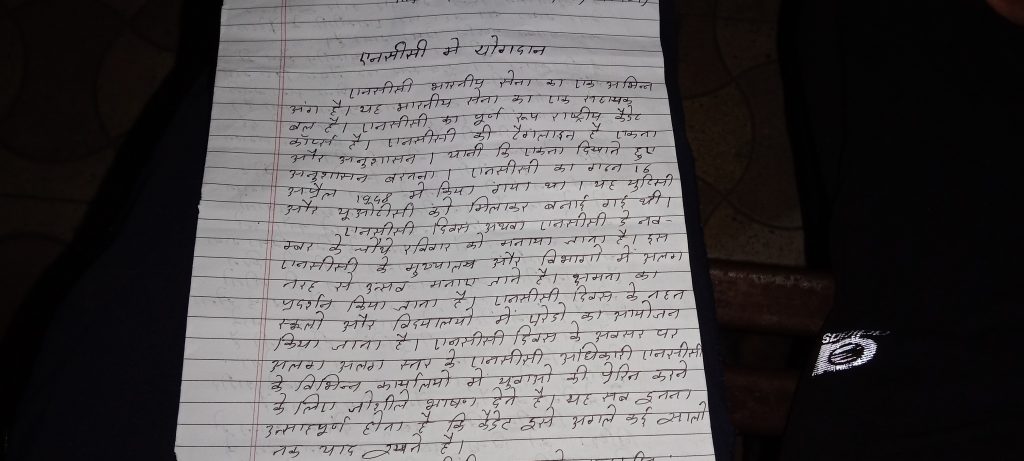 एनसीसी मे योगदान
एनसीसी भारतीय सेना का एक अभिन्न
अंग है। यह भारतीय सेना का एक सहायक
बल है। एनसीसी का पूर्ण रूप राष्ट्रीय कैडेट
कॉर्प्स है। एनसीसी की टैगलाइन है एकता
और अनुशासन। यानी कि एकता दिखाते हुए
अनुशासन बरतना। एनसीसी का गठन 16
अप्रैल 1948 में किया गया था। यह युटिसी
और यूओटीसी को मिलाकर बनाई गई थी।
एनसीसी दिवस अथवा एनसीसी डे नव-
म्बर के चौथे रविवार को मनाया जाता है। इस
एनसीसी के मुख्यालय और विभागो में अलग
तरह से उत्सव मनाए जाते है। क्षमता का
प्रदर्शन किया जाता है। एनसीसी दिवस के तहत
स्कूलो और विद्यालयो में परेडो का आयोजन
किया जाता है। एनसीसी दिवस के अवसर पर
अलग अलग स्तर के एनसीसी अधिकारी एनसीसी
के विभिन्न कार्यालयो मे युवाओ को प्रेरित करने
के लिए जोशीले भाषण देते है। यह सब इतना
उत्साहपूर्ण होता है कि कैडेट इसे अगले कई सालो
तक याद रखते है।